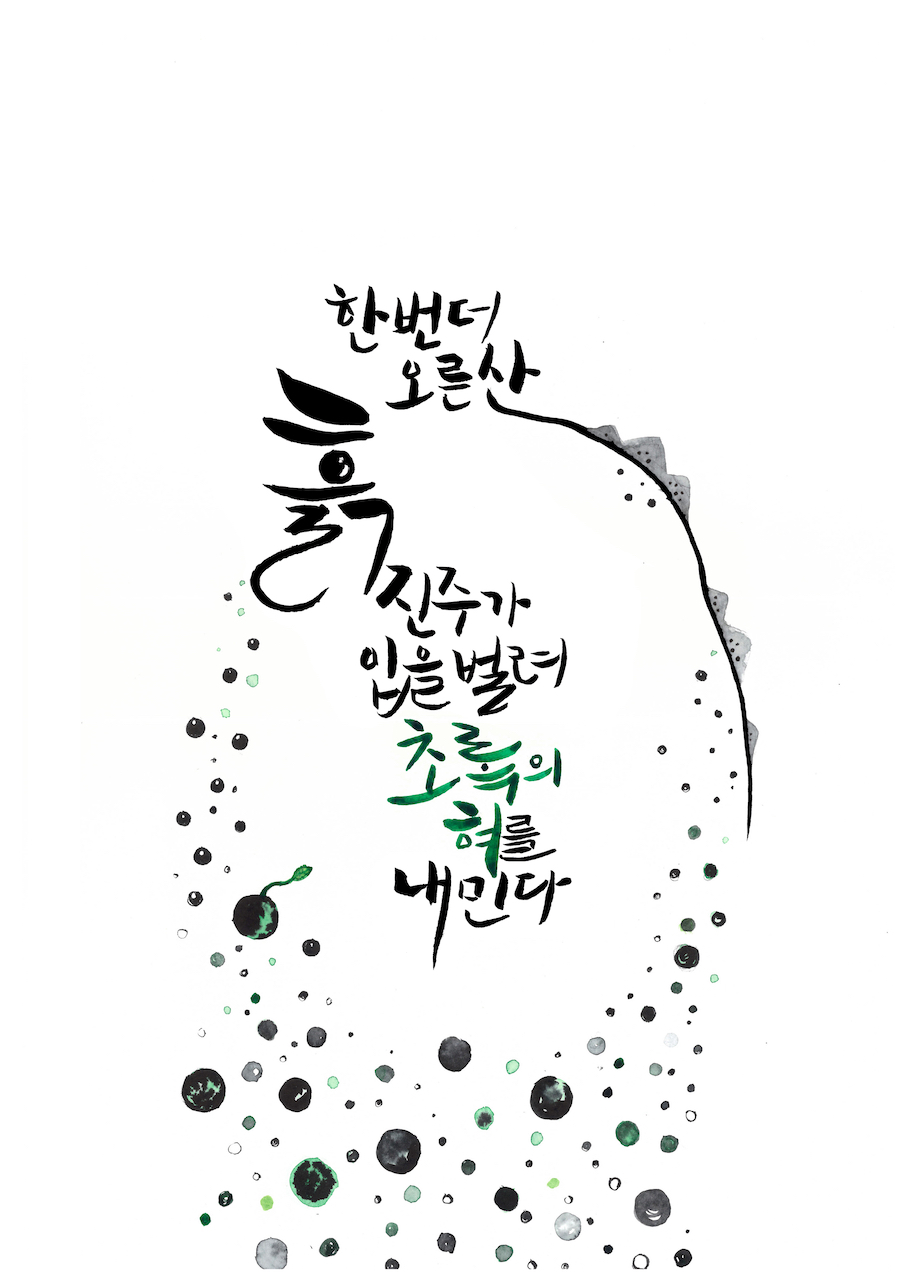 한번더
오른산
흙
진주가
입을 벌려
초록의
혀를
내민다